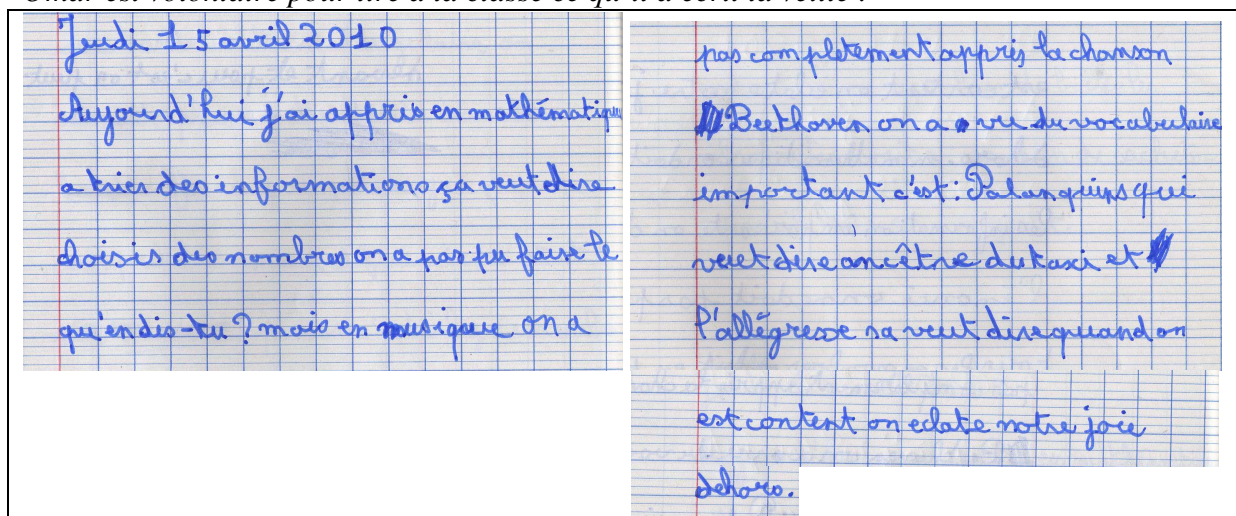 Omar est volontaire pour lire à la classe ce qu'il a écrit la veille :
Jeudi 15 avril 2010
Aujourd'hui j'ai appris en mathématique
a trier des informations ça veut dire
choisis des nombres on a pas pu faire le
qu'en dis-tu ? mais en musique on a
pas completement appris la chanson
Beethoven on a vu du vocabulaire
important c'est : Palanquins qui
veut dire ancêtre du taxi et
l'allégresse sa veut dire quand on
est content on eclate notre joie
dehors.